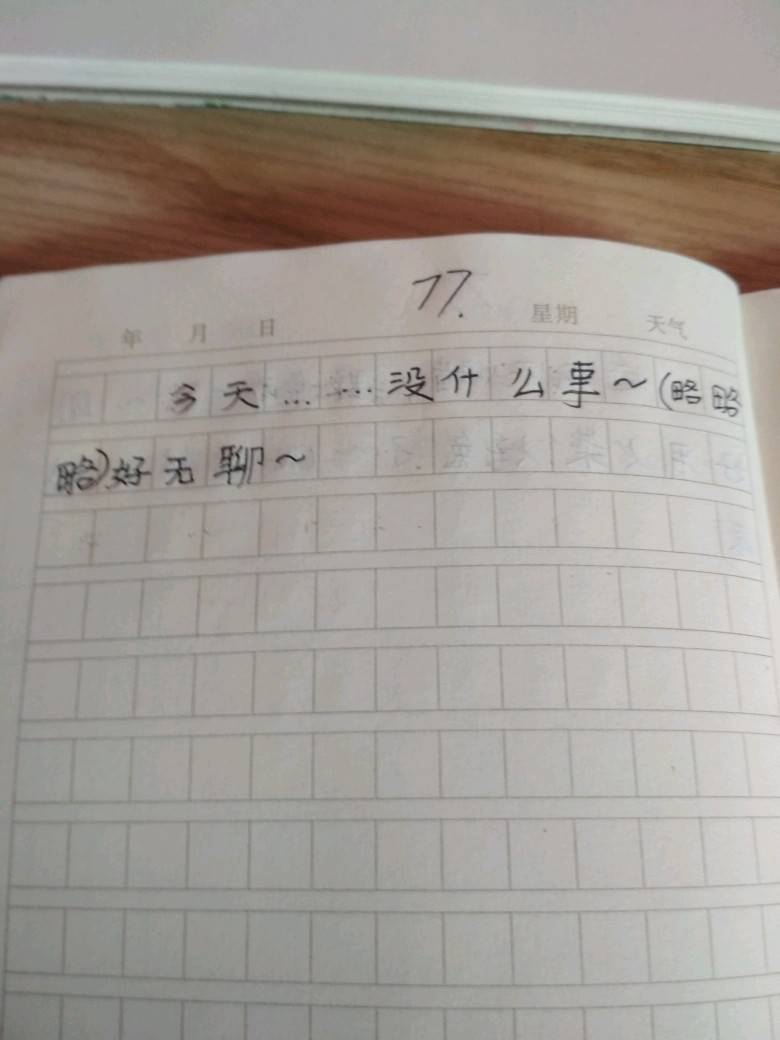 17.
年 月 日 星期 天气
今天……没什么事～(略略
略)好无聊～